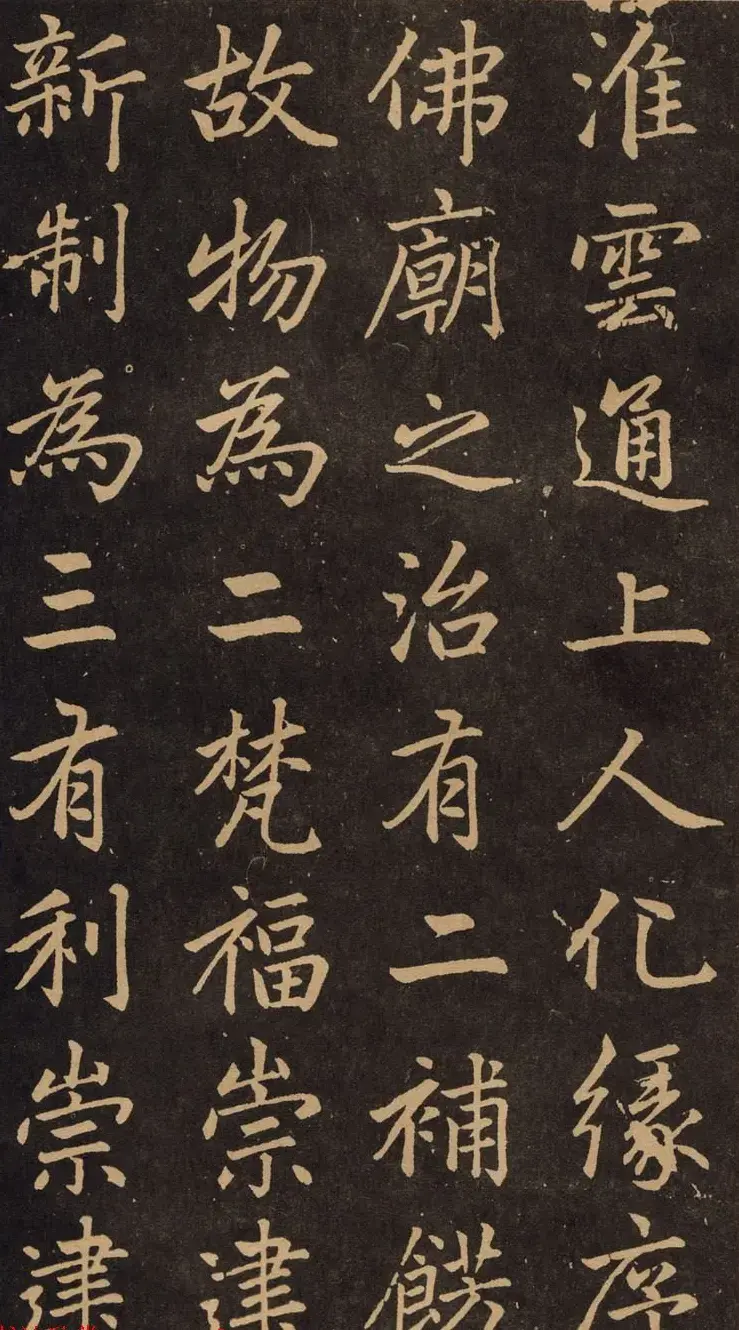 淮雲通上人化緣序
佛廟之治有二補餝
故物為二梵福崇建
新制為三有利崇建